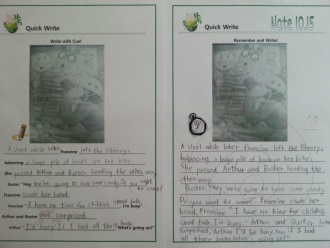 Quick Write
Write with Cue!
A short while later, Francine left the library,
balancing a huge pile of books on her bike.
She passed Arthur and Buster heading the other way.
Buster: "We're going to buy some candy. Do you want to come?"
Francine shook her head.
"I have no time for childish small talk. I'm busy."
Arthur and Buster surprised.
Arthur: "I'd busy, if I had all those books. What's going on?"
Quick Write
Note 10.15
Remember and Write!
A short while later, Francine left the library,
balancing a huge pile of books on her bike.
She passed Arthur and Buster heading the
other way.
Buster: "We're going to buy some candy.
Do you want to come?" Francine shook her
head. Francine: "I have no time for childish
small talk. I'm busy." Arthur and Buster
surprised. Arthur: "I'd be busy, too, if I had
all those books. What's going on?"